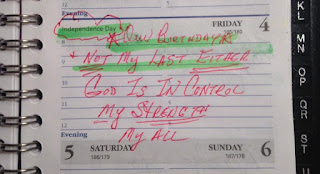 Evening
FRIDAY 4
Independence Day
185/180
*New Birthday*
+ Not My Last Either
God Is In Control
My Strength
My All
Evening
5 SATURDAY
186/179
SUNDAY 6
187/178
KL
MN
OP
QR
ST